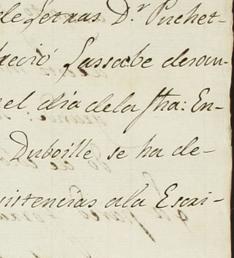 de Letras D.r Puchet-
reció Lassabe desan-
el dia de la fha: En-
Duboille se ha de-
sistencias a la Escri-